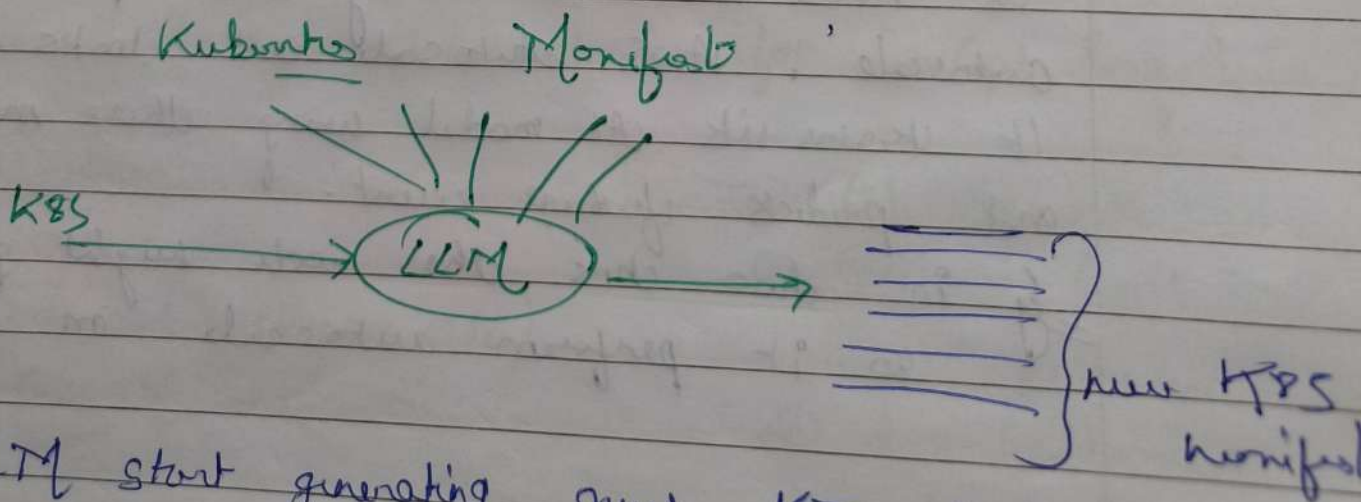 Kubernetes Manifest
K8S
LLM
new K8S
manifest
M start generating